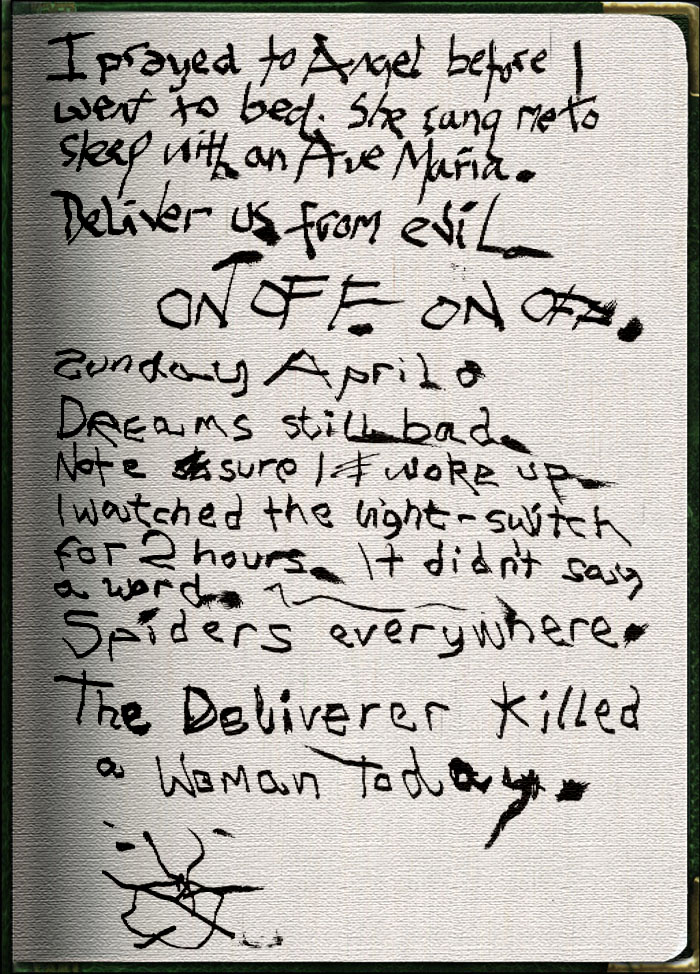 I prayed to Angel before I
went to bed. She sang me to
sleep with an Ave Maria.
Deliver us from evil
ON OFF. ON OFF.
Sunday April
Dreams still bad.
Not sure I woke up
I watched the light-switch
for 2 hours. It didn't say
a word.
Spiders everywhere.
The Deliverer killed
a Woman Today.